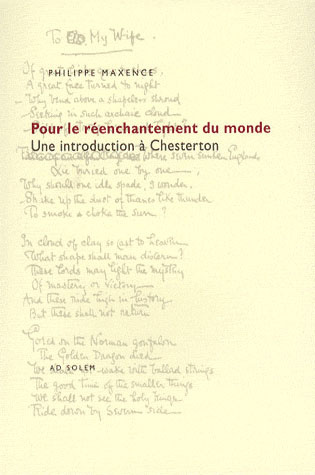 To My Wife.
Of great
PHILIPPE MAXENCE
A great face turned to night
Why bend above a shapeless shroud
Seeking in such archaic cloud
Pour le réenchantement du monde
Une introduction à Chesterton
Where seven sunken Englands
Lie buried one by one
Why should one idle spade, I wonder
Shake up the dust of thanes like thunder
To smoke & choke the sun?
In cloud of clay so cast to heaven
What shape shall man discern?
These lords may light the mystery
Of mastery or victory
And these ride high in history
But these shall not return
Gored on the Norman gonfalon
The Golden Dragon died
AD SOLEM
We shall not wake with ballad strings
The good time of the smaller things
We shall not see the holy things
Ride down by Severn side